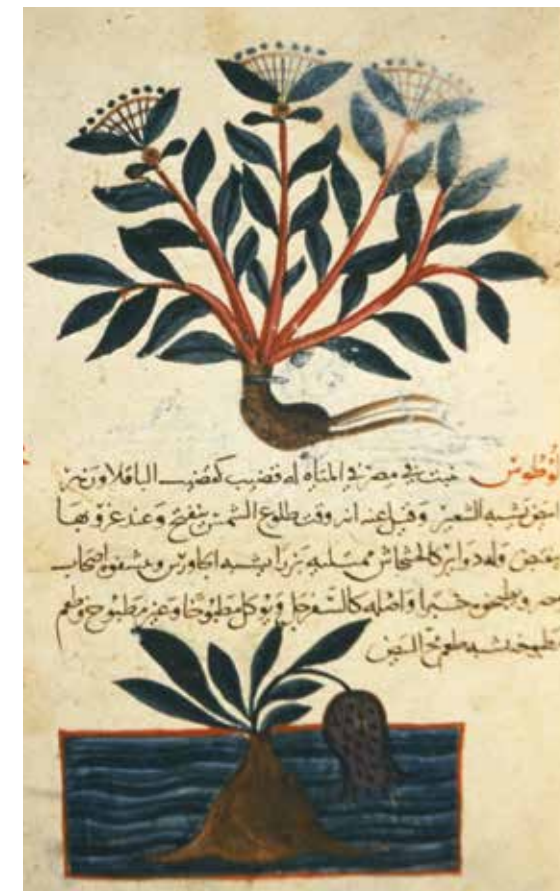 لوطوس ينبت في مصر في المياه له قضيب كقضيب الباقلا وزهر
ابيض يشبه وقيل عنه انه وقت طلوع الشمس ينفتح وعند غروبها
ينقبض وله دواير كالخشخاش ممتليه بزرا يشبه الجاورس ويشفوه اصحاب
مصر ويطبخوه خبزا واصله كالسفرجل ويوكل مطبوخا وغير مطبوخ وطعم
مطبوخه يشبه طعم مح البيض